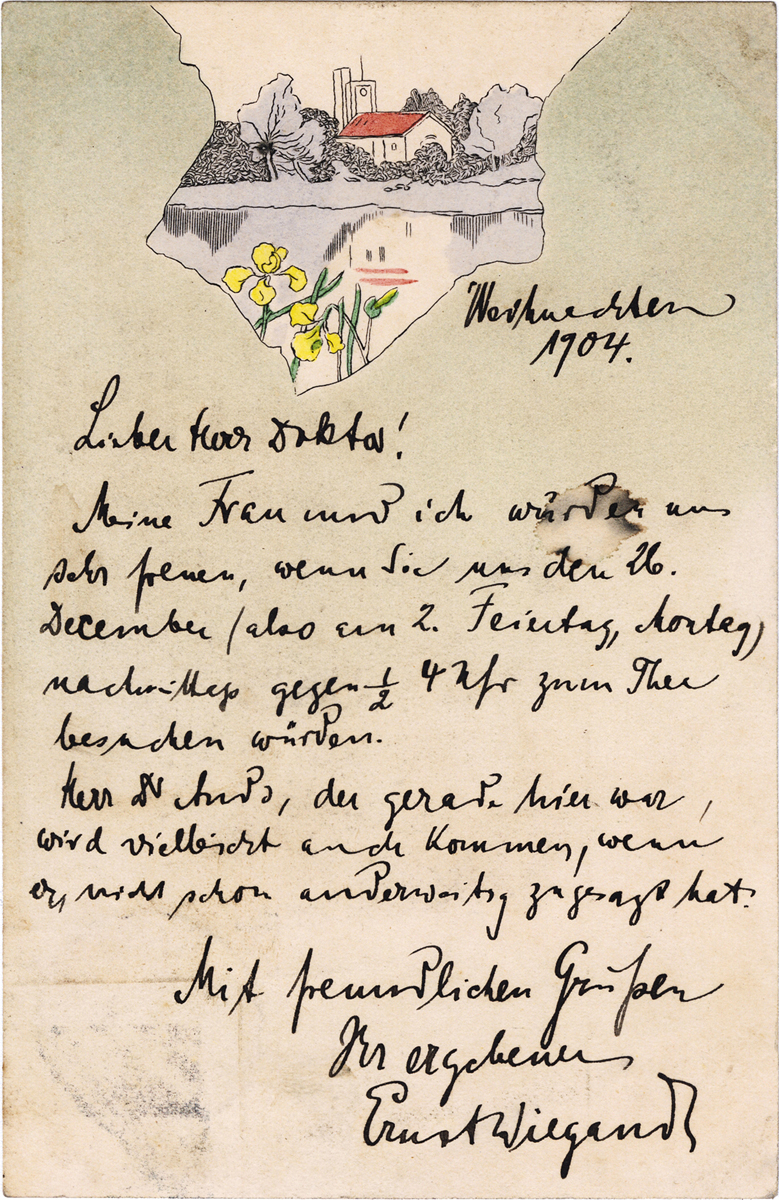 Weihnachten
1904.
Lieber Herr Doktor!
Meine Frau und ich würden uns
sehr freuen, wenn Sie uns den 26.
December (also am 2. Feiertag, Montag)
nachmittags gegen ½ 4 Uhr zum Thee
besuchen würden.
Herr Dr , der gerade hier war,
wird vielleicht auch kommen, wenn
er, nicht schon anderweitig zugesagt hat.
Mit freundlichen Grüßen
Ihr ergebener
Ernst Wiegand